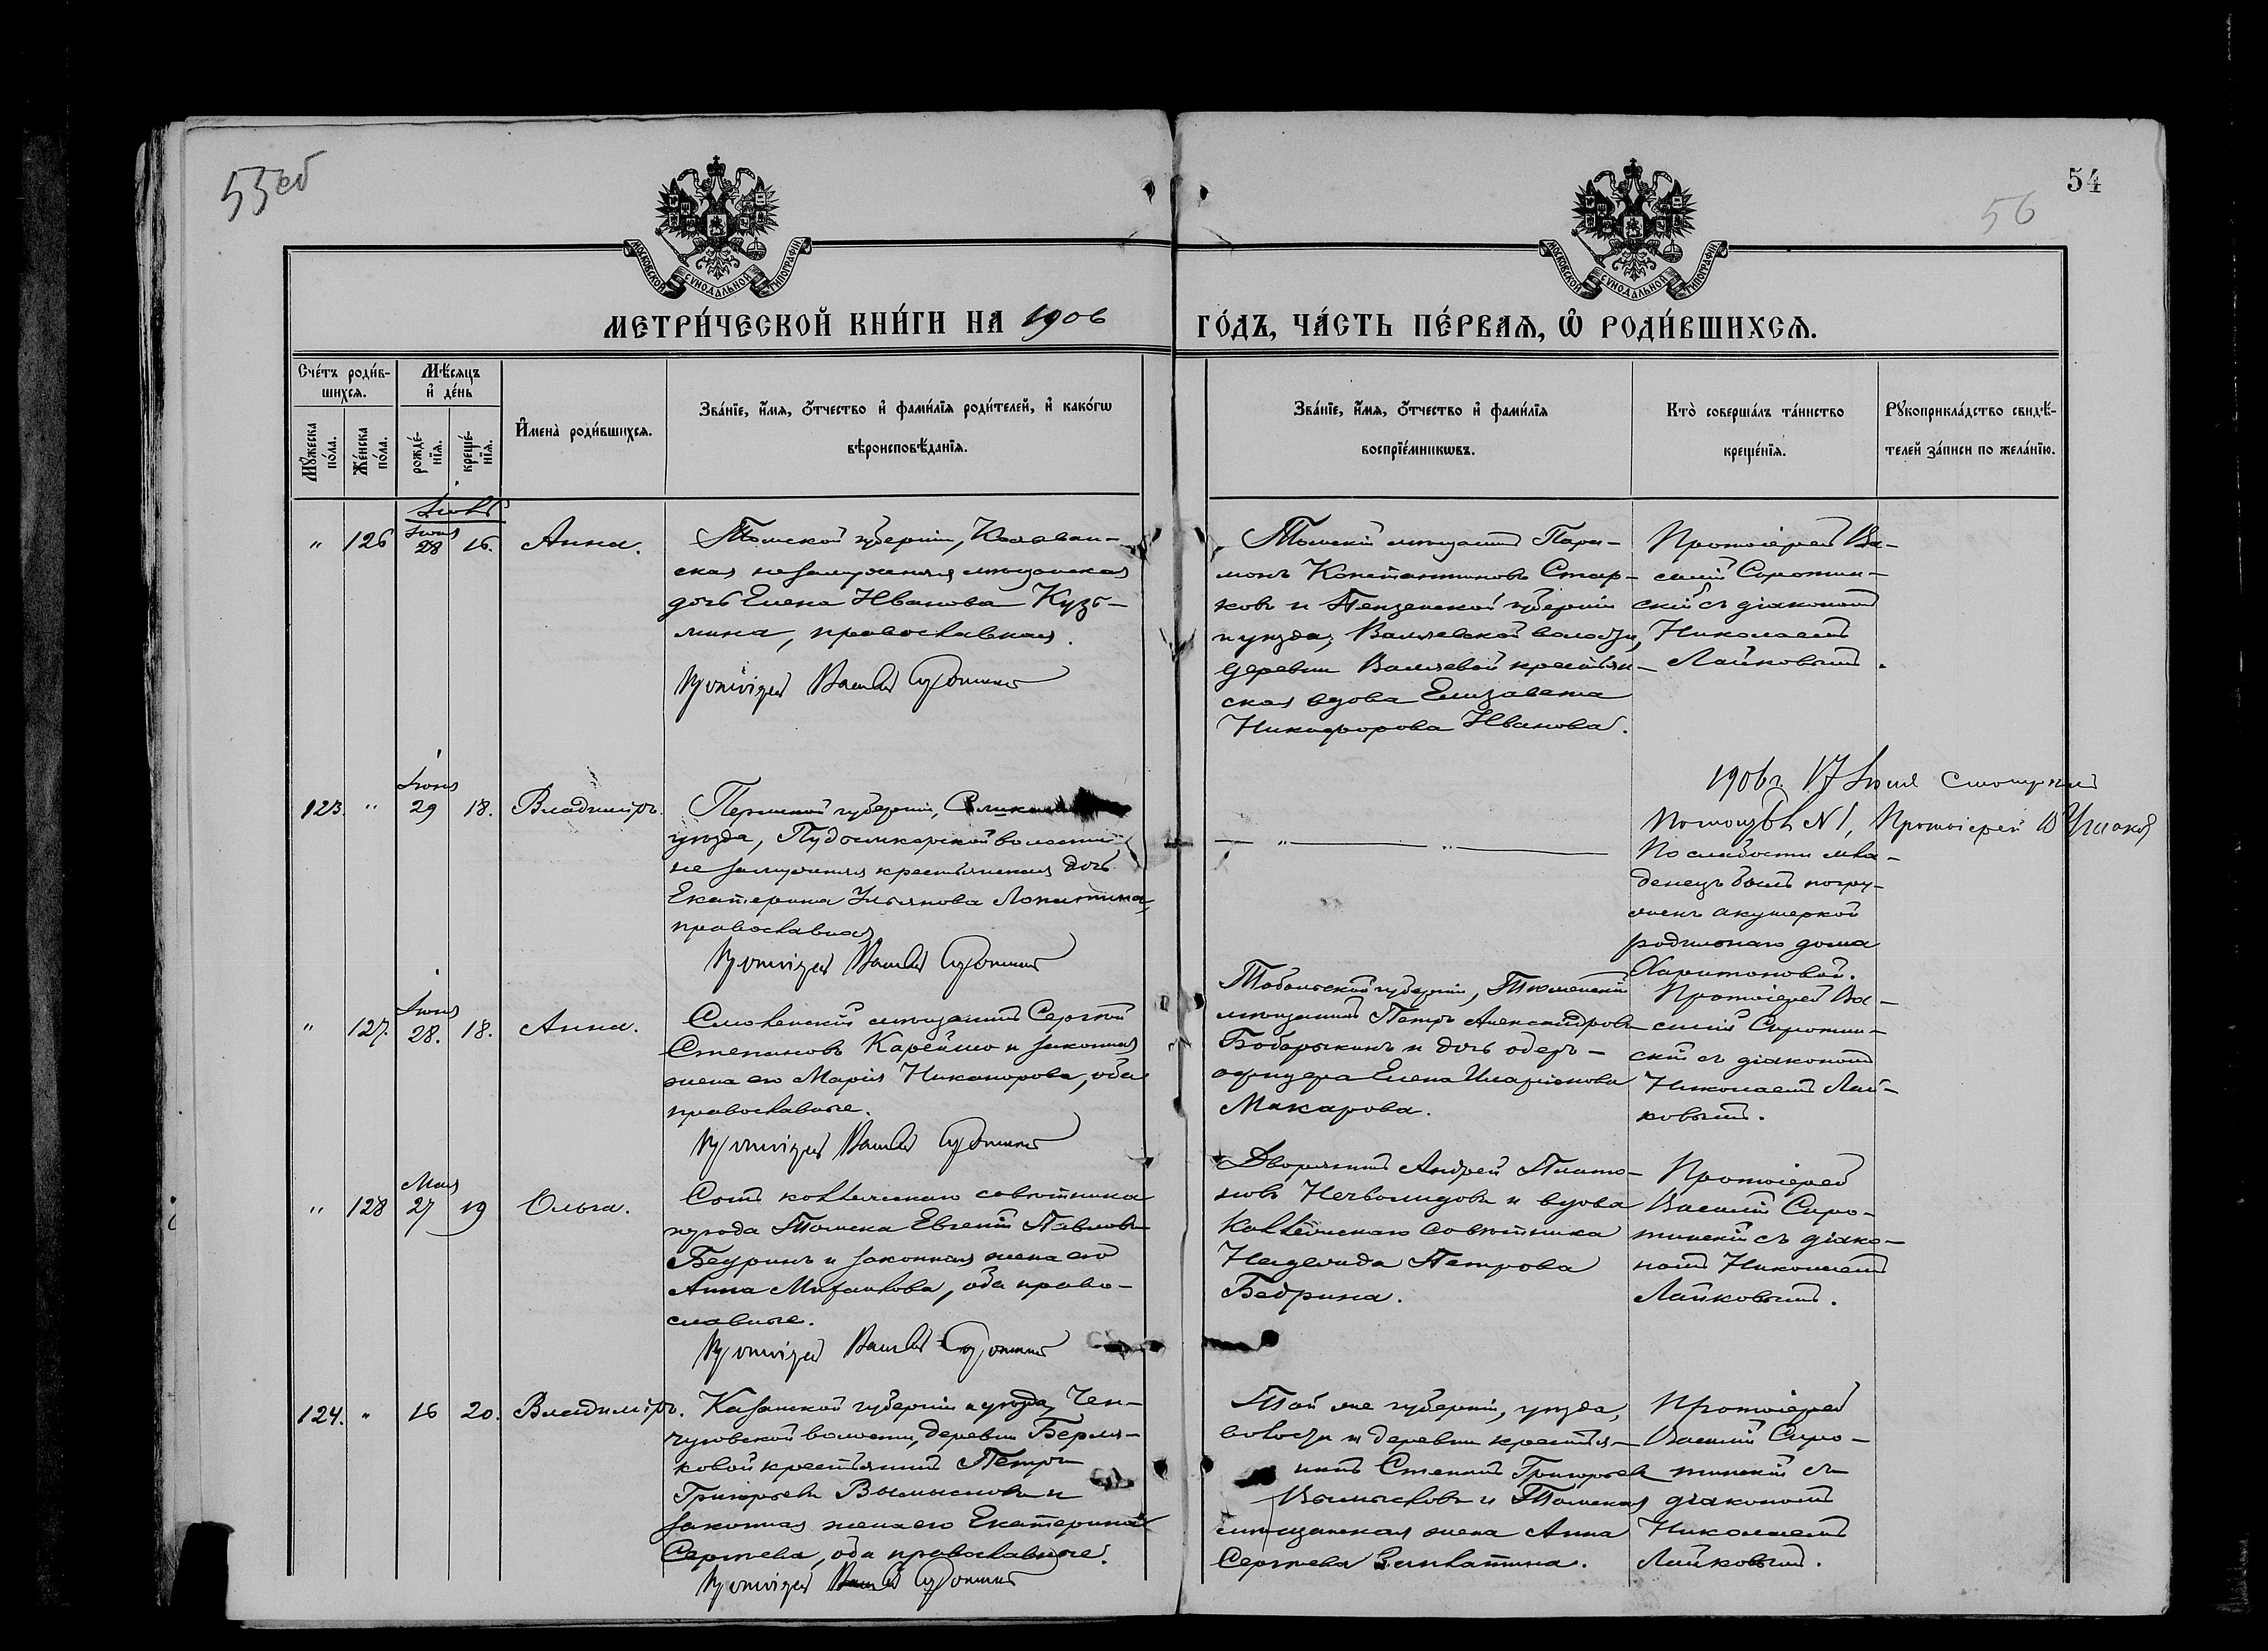 53 об
54
56
МОСКОВСКОЙ СѴНОДАЛЬНОЙ ТИПОГРАФІИ
МОСКОВСКОЙ СѴНОДАЛЬНОЙ ТИПОГРАФІИ
МЕТРИ́ЧЕСКОЙ КНИ́ГИ НА 1906
ГО́ДЪ, ЧА́СТЬ ПЕ́РВАЯ, Ѿ РОДИ́ВШИХСЯ.
Сче́тъ роди́в-
шихся.
Мѣ́сяцъ
и де́нь
Мꙋ́жеска по́ла.
Же́нска по́ла.
рожде́-
нїя.
креще́-
нїя.
Имена̀ роди́вшихся.
Зва́нїе, и́мя, ѻ́тчество и фами́лїя роди́телей, и како́гѡ
вѣроисповѣ́данїя.
Зва́нїе, и́мя, ѻ́тчество и фами́лїя
воспрїе́мникѡвъ.
Кто̀ соверша́лъ та́инство
креще́нїя.
Рꙋкоприкла́дство свидѣ́-
телей за́писи по жела́нїю.
Іюль
" 126 Іюня 28 16. Анна.
Томской губерніи, Колыван-
ская незамужняя мѣщанская
дочь Елена Иванова Кузь-
мина, православная.
Протоіерей Василій Сиротинскій
Томскій мѣщанинъ Пара-
монъ Константиновъ Стар-
ковъ и Пензенской губерніи
и уѣзда, Валяевской волости,
деревни Валяевой крестьян-
ская вдова Елизавета
Никифорова Иванова.
Протоіерей Ва-
силій Сиротин-
скій съ діакономъ
Николаемъ
Лайковымъ.
123. " Іюня 29 18. Владиміръ.
Пермской губерніи,
уѣзда, Пудоминкарской волости
незамужняя крестьянская дочь
Екатерина Ульянова Лопатина,
православная
Протоіерей Василій Сиротинскій
— " — " —
1906 г. 17 Іюля
№ 1, Протоіерей В
По слабости мла-
денецъ былъ погру-
женъ акушеркой
родильнаго дома
Харитоновой.
" 127. Іюня 28. 18. Анна.
Смоленскій мѣщанинъ Сергѣй
Степановъ Карейшо и законная
жена его Марія Никанорова, оба
православные.
Протоіерей Василій Сиротинскій
Тобольской губерніи, Тюменскій
мѣщанинъ Петръ Александровъ
Бобарыкинъ и дочь оберъ-
офицера Елена Иларіонова
Макарова.
Протоіерей Ва-
силій Сиротин-
скій съ діакономъ
Николаемъ Лай-
ковымъ.
" 128 Мая 27 19 Ольга.
Сынъ коллежскаго совѣтника
города Томска Евгеній Павловъ
Бедринъ и законная жена его
Анна Михайлова, оба право-
славные.
Протоіерей Василій Сиротинскій
Дворянинъ Андрей Плато-
новъ Нечволодовъ и вдова
Коллежскаго Совѣтника
Надежда Петрова
Бедрина.
Протоіерей
Василій Сиро-
тинскій съ діако-
номъ Николаемъ
Лайковымъ.
124. " 16 20. Владиміръ.
Казанской губерніи и уѣзда, Чен-
чуговской волости, деревни Берля-
ковой крестьянинъ Петръ
Григорьевъ Вымысловъ и
законная жена его Екатерина
Сергѣева, оба православные.
Протоіерей Василій Сиротинскій
Той же губерніи, уѣзда,
волости и деревни крестья-
нинъ Степанъ Григорьевъ
Вымысловъ и Томская
мѣщанская жена Анна
Сергѣева
Протоіерей
Василій Сиро-
тинскій съ
діакономъ
Николаемъ
Лайковымъ.